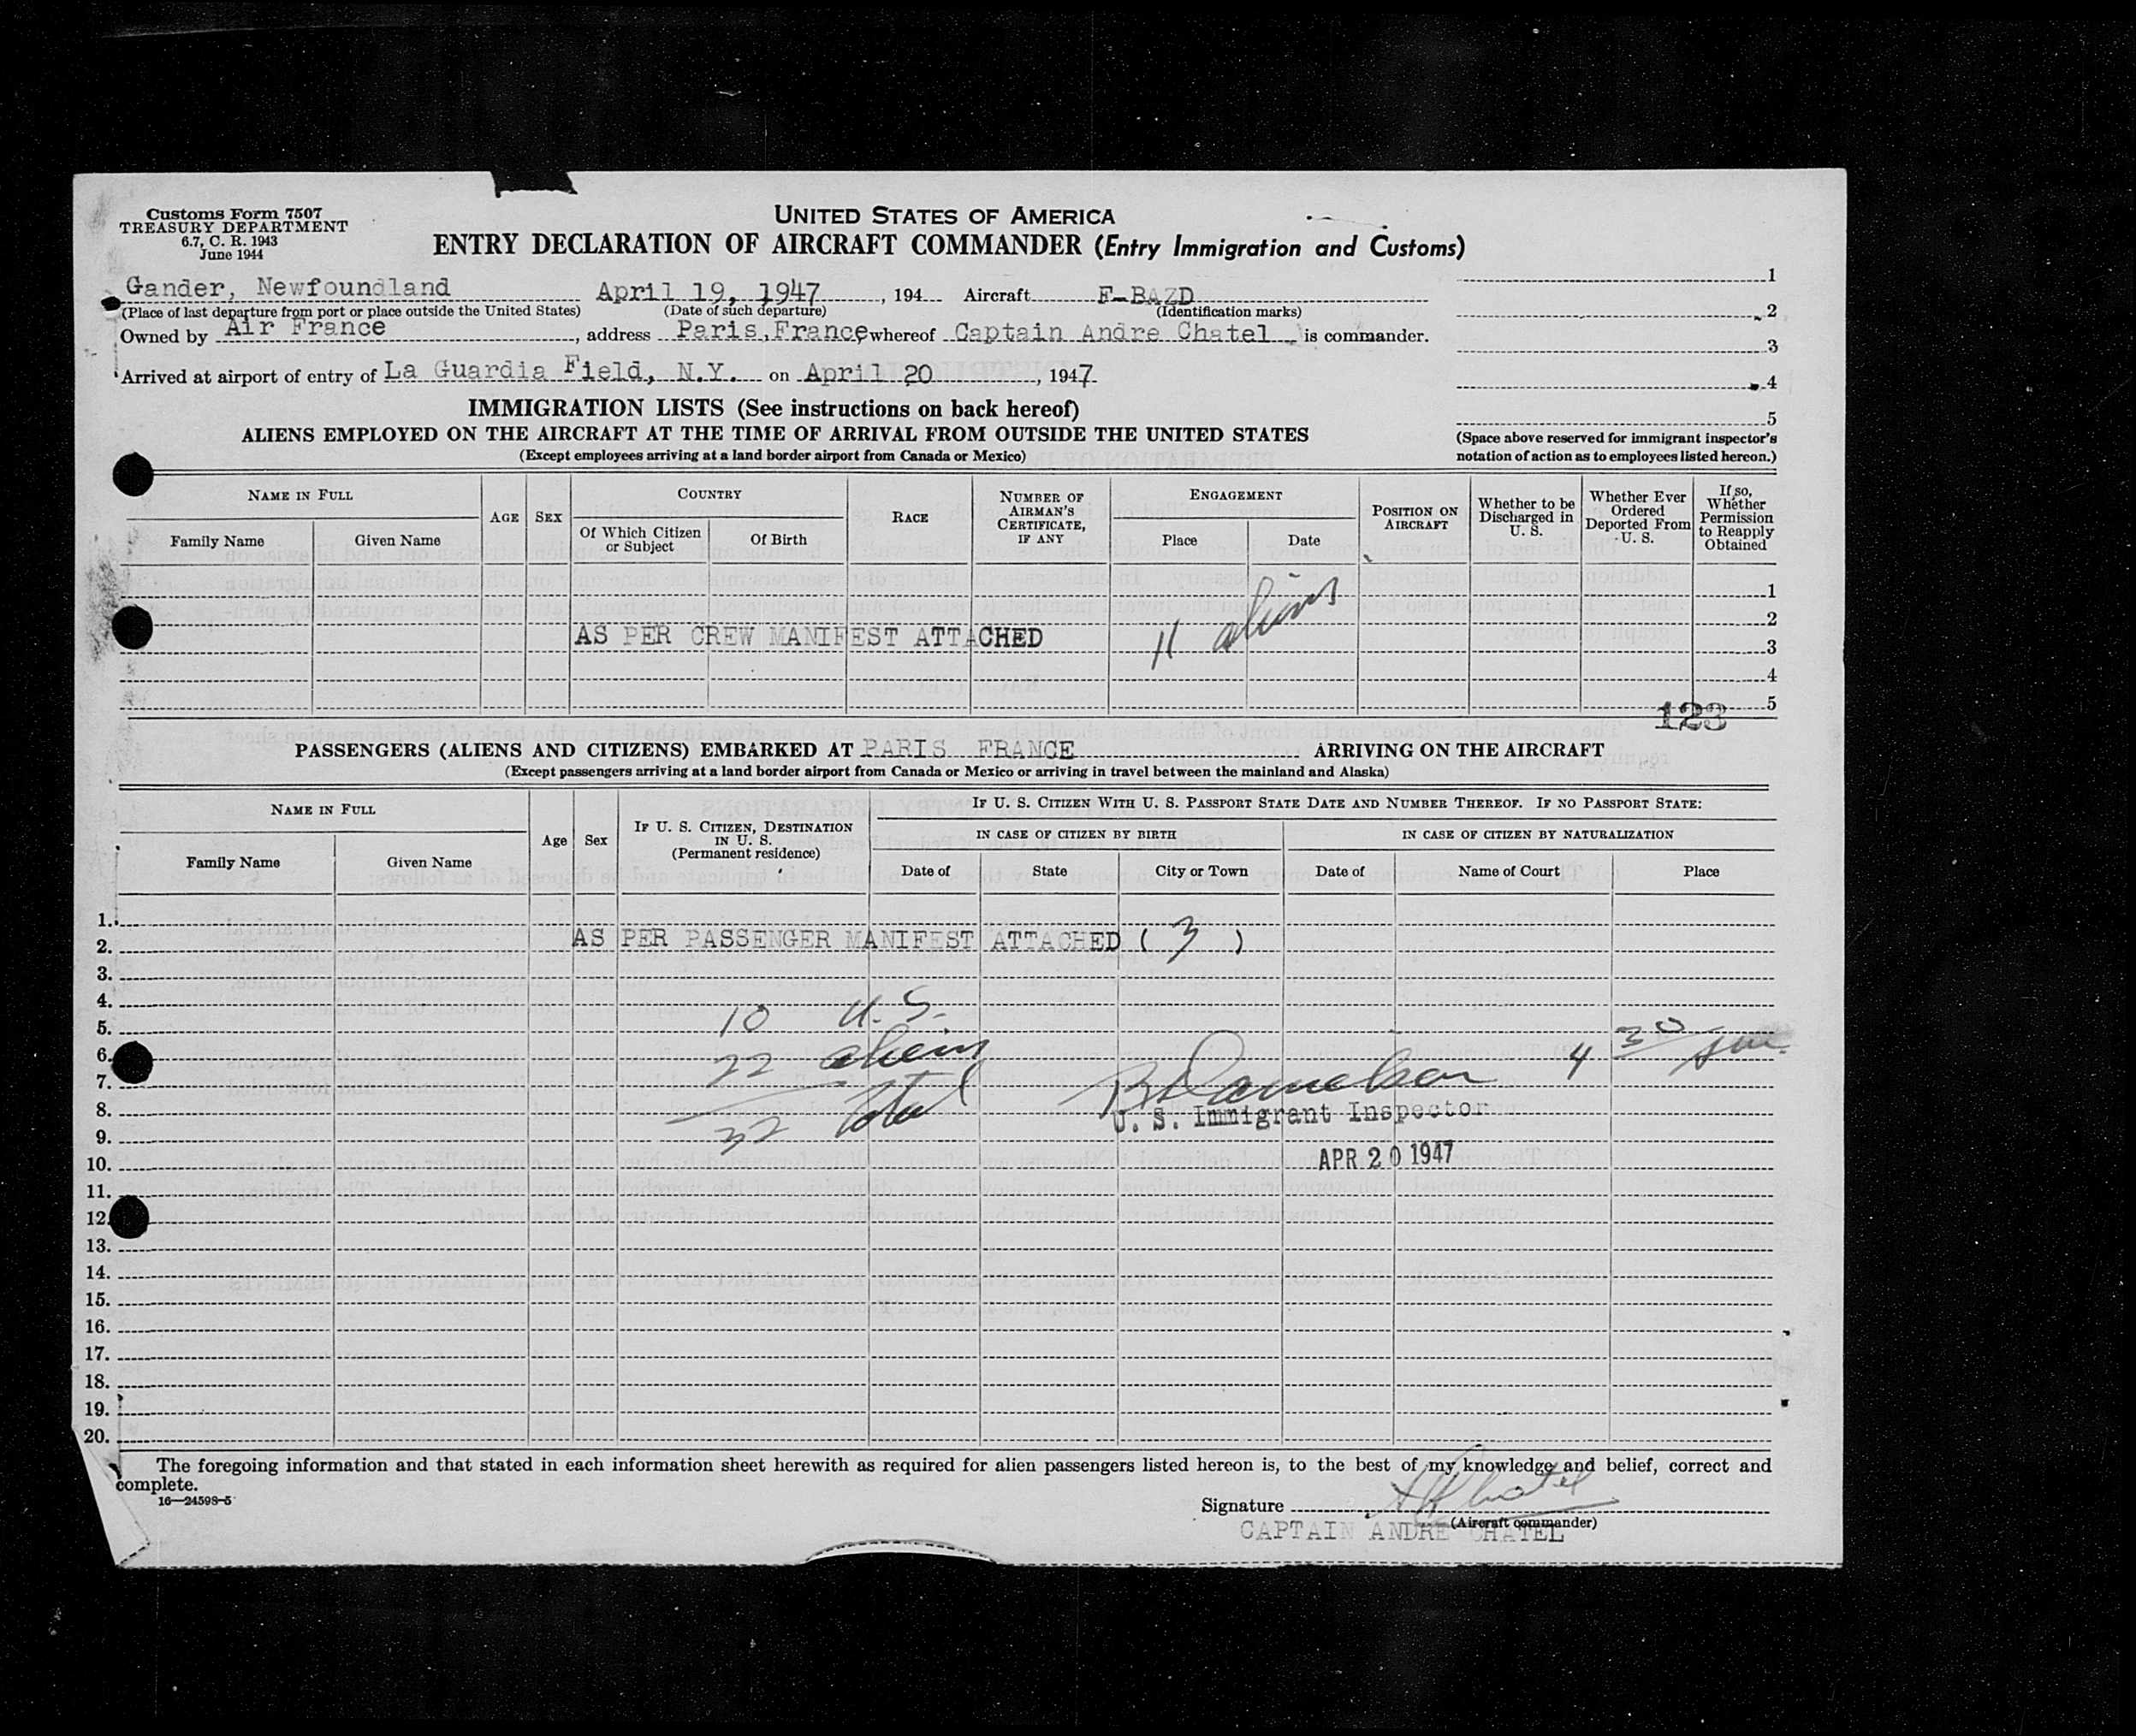 Customs Form 7507
TREASURY DEPARTMENT
6.7, C. R. 1943
June 1944
UNITED STATES OF AMERICA
ENTRY DECLARATION OF AIRCRAFT COMMANDER (Entry Immigration and Customs)
Gander, Newfoundland April 19, 1947, 194 Aircraft F-BAZD
(Place of last departure from port or place outside the United States) (Date of such departure) (Identification marks)
Owned by Air France, address Paris, France whereof Captain Andre Chatel is commander.
Arrived at airport of entry of La Guardia Field, N.Y. on April 20, 1947
1
2
3
4
5
(Space above reserved for immigrant inspector's
notation of action as to employees listed hereon.)
IMMIGRATION LISTS (See instructions on back hereof)
ALIENS EMPLOYED ON THE AIRCRAFT AT THE TIME OF ARRIVAL FROM OUTSIDE THE UNITED STATES
(Except employees arriving at a land border airport from Canada or Mexico)
NAME IN FULL
Family Name
Given Name
AGE
SEX
COUNTRY
Of Which Citizen
or Subject
Of Birth
RACE
NUMBER OF
AIRMAN'S
CERTIFICATE,
IF ANY
ENGAGEMENT
Place
Date
POSITION ON
AIRCRAFT
Whether to be
Discharged in
U. S.
Whether Ever
Ordered
Deported From
U. S.
If so,
Whether
Permission
to Reapply
Obtained
1
2
AS PER CREW MANIFEST ATTACHED 11 aliens
3
4
5
123
PASSENGERS (ALIENS AND CITIZENS) EMBARKED AT PARIS FRANCE ARRIVING ON THE AIRCRAFT
(Except passengers arriving at a land border airport from Canada or Mexico or arriving in travel between the mainland and Alaska)
NAME IN FULL
Family Name
Given Name
Age
Sex
IF U. S. CITIZEN, DESTINATION
IN U. S.
(Permanent residence)
IF U. S. CITIZEN WITH U. S. PASSPORT STATE DATE AND NUMBER THEREOF. IF NO PASSPORT STATE:
IN CASE OF CITIZEN BY BIRTH
Date of
State
City or Town
IN CASE OF CITIZEN BY NATURALIZATION
Date of
Name of Court
Place
1.
2. AS PER PASSENGER MANIFEST ATTACHED ( 3 )
3.
4.
5. 10 U. S.
6. 22 aliens 4 30
7.
8. 32 total U. S. Immigrant Inspector
9.
10. APR 20 1947
11.
12.
13.
14.
15.
16.
17.
18.
19.
20.
The foregoing information and that stated in each information sheet herewith as required for alien passengers listed hereon is, to the best of my knowledge and belief, correct and
complete.
16—24598-5
Signature
(Aircraft commander)
CAPTAIN ANDRE CHATEL